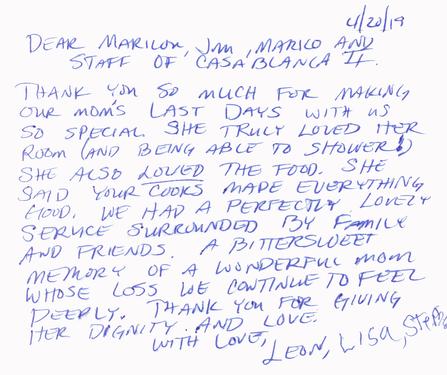 4/20/19
DEAR MARILOU, JIM, MARICO AND
STAFF OF CASABLANCA II.
THANK YOU SO MUCH FOR MAKING
OUR MOM'S LAST DAYS WITH US
SO SPECIAL. SHE TRULY LOVED HER
ROOM (AND BEING ABLE TO SHOWER!)
SHE ALSO LOVED THE FOOD. SHE
SAID YOUR COOKS MADE EVERYTHING
GOOD. WE HAD A PERFECTLY LOVELY
SERVICE SURROUNDED BY FAMILY
AND FRIENDS. A BITTERSWEET
MEMORY OF A WONDERFUL MOM
WHOSE LOSS WE CONTINUE TO FEEL
DEEPLY. THANK YOU FOR GIVING
HER DIGNITY AND LOVE.
WITH LOVE,
LEON, LISA,